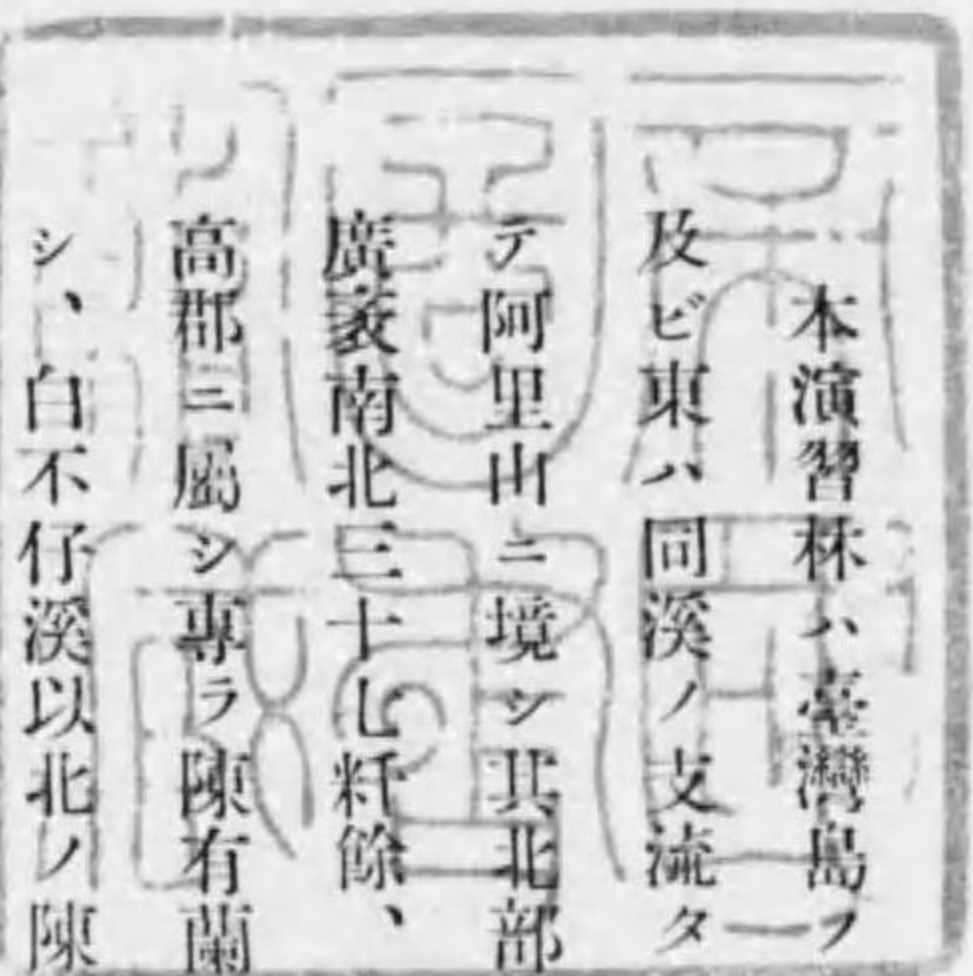 本演習林ハ臺灣島
及ビ東ハ同溪ノ支流タ
テ阿里山ニ境シ其北部
廣袤南北三十七粁餘、
高郡ニ屬シ專ラ陳有蘭
シ、白不仔溪以北ノ陳